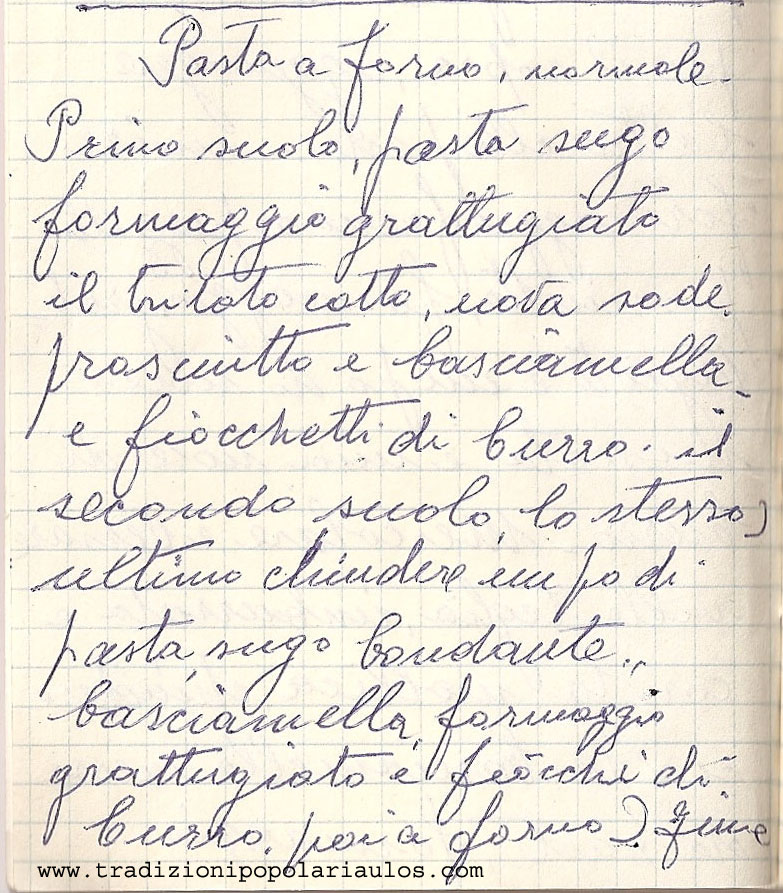 Pasta a forno, normale.
Primo suolo, pasta sugo
formaggio grattugiato
il tritato cotto, uova sode,
prosciutto e basciamella,
e fiocchetti di burro. il
secondo suolo, lo stesso)
ultimo chiudere un po di
pasta, sugo bondante,,
basciamella, formaggio
grattugiato e fiocchi di
burro. poi a forno) fine
www.tradizionipopolariaulos.com